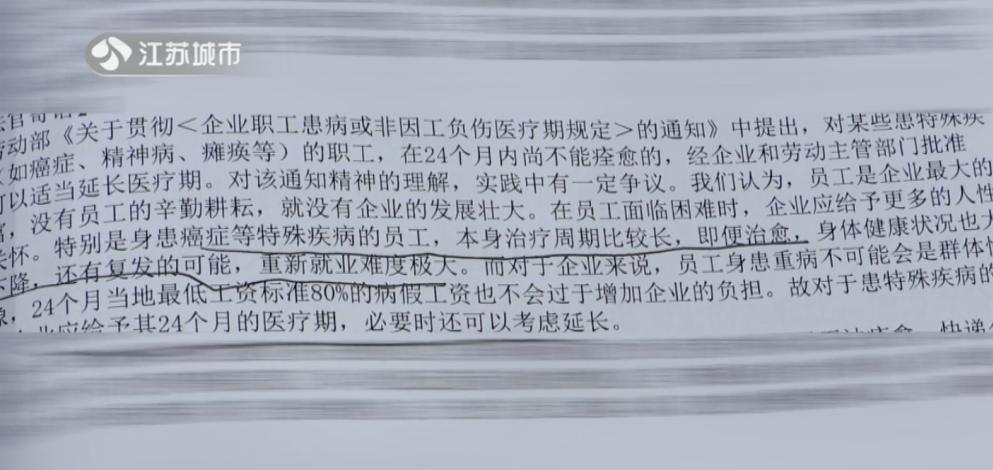 江苏城市
法官寄语
劳动部《关于贯彻＜企业职工患病或非因工负伤医疗期规定＞的通知》中提出，对某些患特殊疾
（如癌症、精神病、瘫痪等）的职工，在24个月内尚不能痊愈的，经企业和劳动主管部门批准
可以适当延长医疗期。对该通知精神的理解，实践中有一定争议。我们认为，员工是企业最大的
富，没有员工的辛勤耕耘，就没有企业的发展壮大。在员工面临困难时，企业应给予更多的人性
关怀。特别是身患癌症等特殊疾病的员工，本身治疗周期比较长，即便治愈，身体健康状况也大
下降，还有复发的可能，重新就业难度极大。而对于企业来说，员工身患重病不可能会是群体性
，24个月当地最低工资标准80%的病假工资也不会过于增加企业的负担。故对于患特殊疾病的
企业应给予其24个月的医疗期，必要时还可以考虑延长。